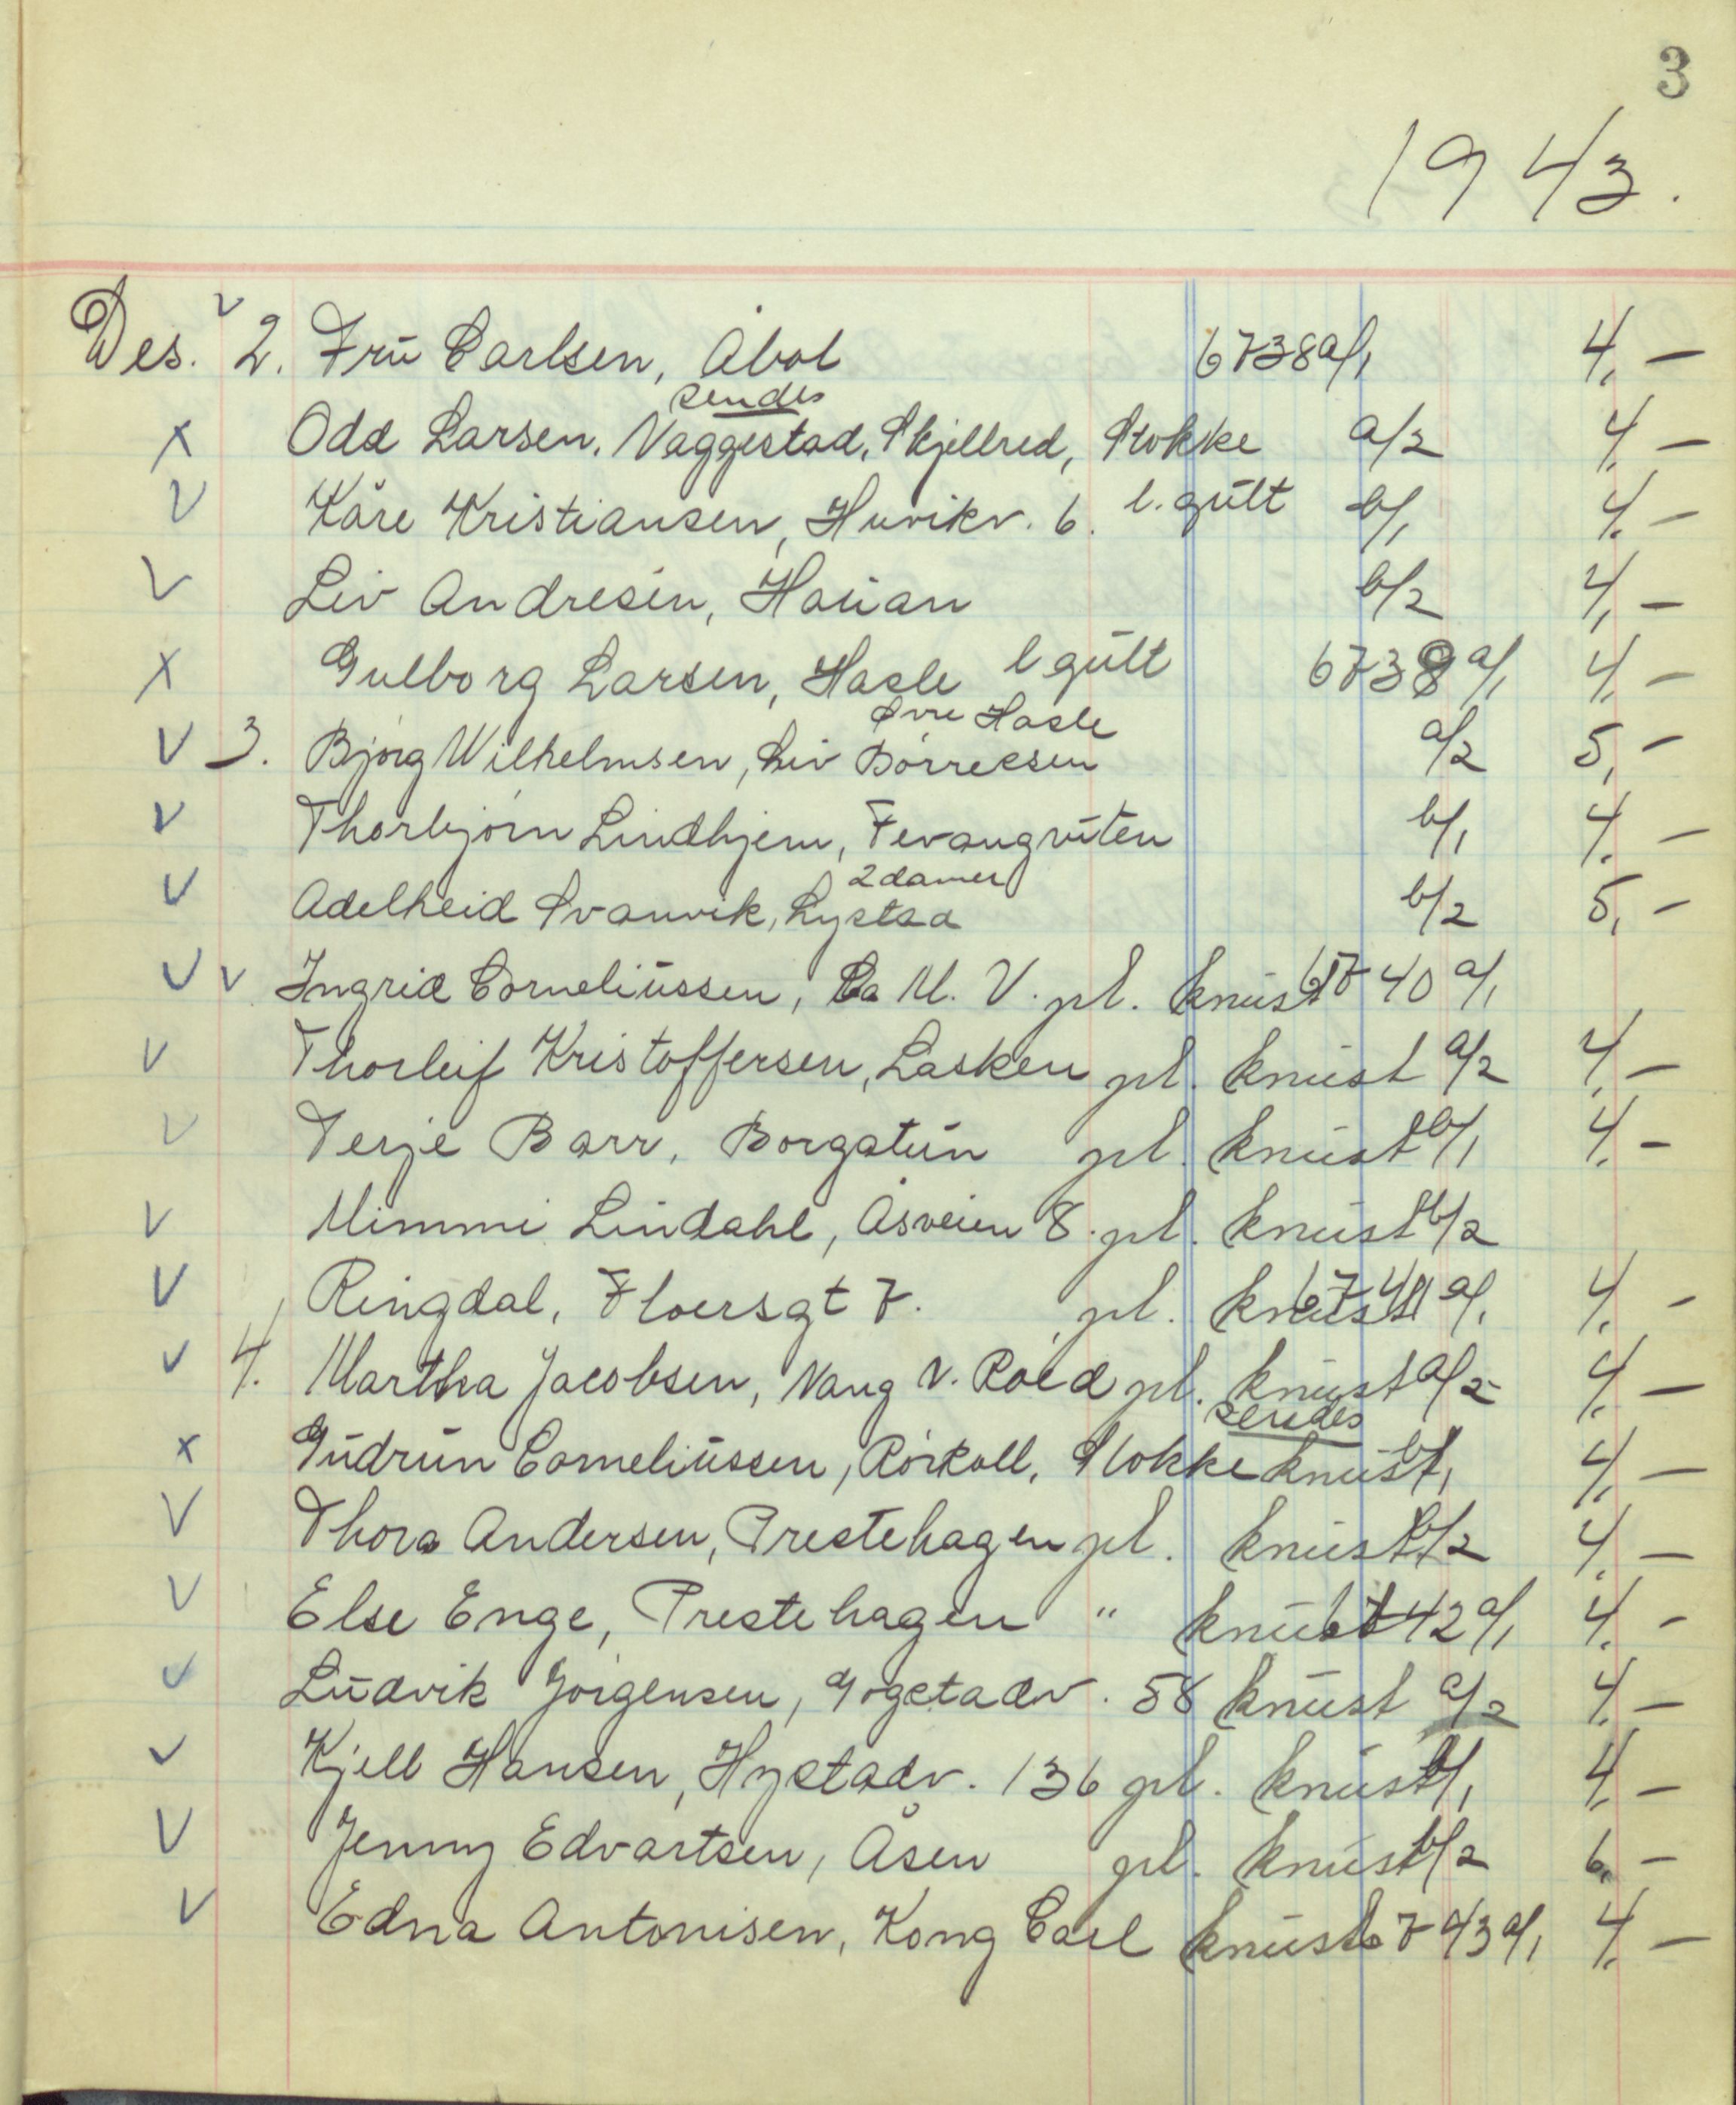 3
1943.
Des. 2. Frū Carlsen, Åbol 6738 a/1 4,-
sendes
Odd Larsen, Vaggestad, Skjellred, Stokke a/2 4,-
Kåre Kristiansen, Huvikv. 6. l. gūlt b/1 4,-
Liv Andresen, Haūan b/2 4,-
Gulborg Larsen, Hasle l gūlt 6739 a/1 4,-
Øvre Hasle
3. Bjørg Wilhelmsen, Liv Børresen a/2 5,-
Thorbjørn Lindhjem, Fevangrūten b/1 4,-
2 damer
Adelheid Svanvik, Lystad b/2 5,-
Ingrid Corneliūssen, Ca M. V. pl. knūst 6740 a/1
Thorleif Kristoffersen, Lasken pl. knūst a/2 4,-
Terje Barr, Borgatūn pl. knūst b/1 4,-
Mimmi Lindahl, Åsveien 8. pl. knūst b/2
Ringdal, Floersgt 7. pl. knūst 6741 a/1 4,-
4. Martha Jacobsen, Vang v. Raed pl. knūst a/2 4,-
sendes
Gūdrūn Corneliūssen, Rørkoll, Stokke knūst b/1 4,-
Thora Andersen, Prestehagen pl. knūst b/2 4,-
Else Enge, Prestehagen " knūst 6742 a/1 4,-
Lūdvik Jørgensen, Gogstadv. 58 knūst a/2 4,-
Kjell Hansen, Hystadv. 136 pl. knūst b/1 4,-
Jenny Edvartsen, Åsen pl. knūst b/2 6,-
Edna Antonisen, Kong Carl knūst 6743 a/1 4,-